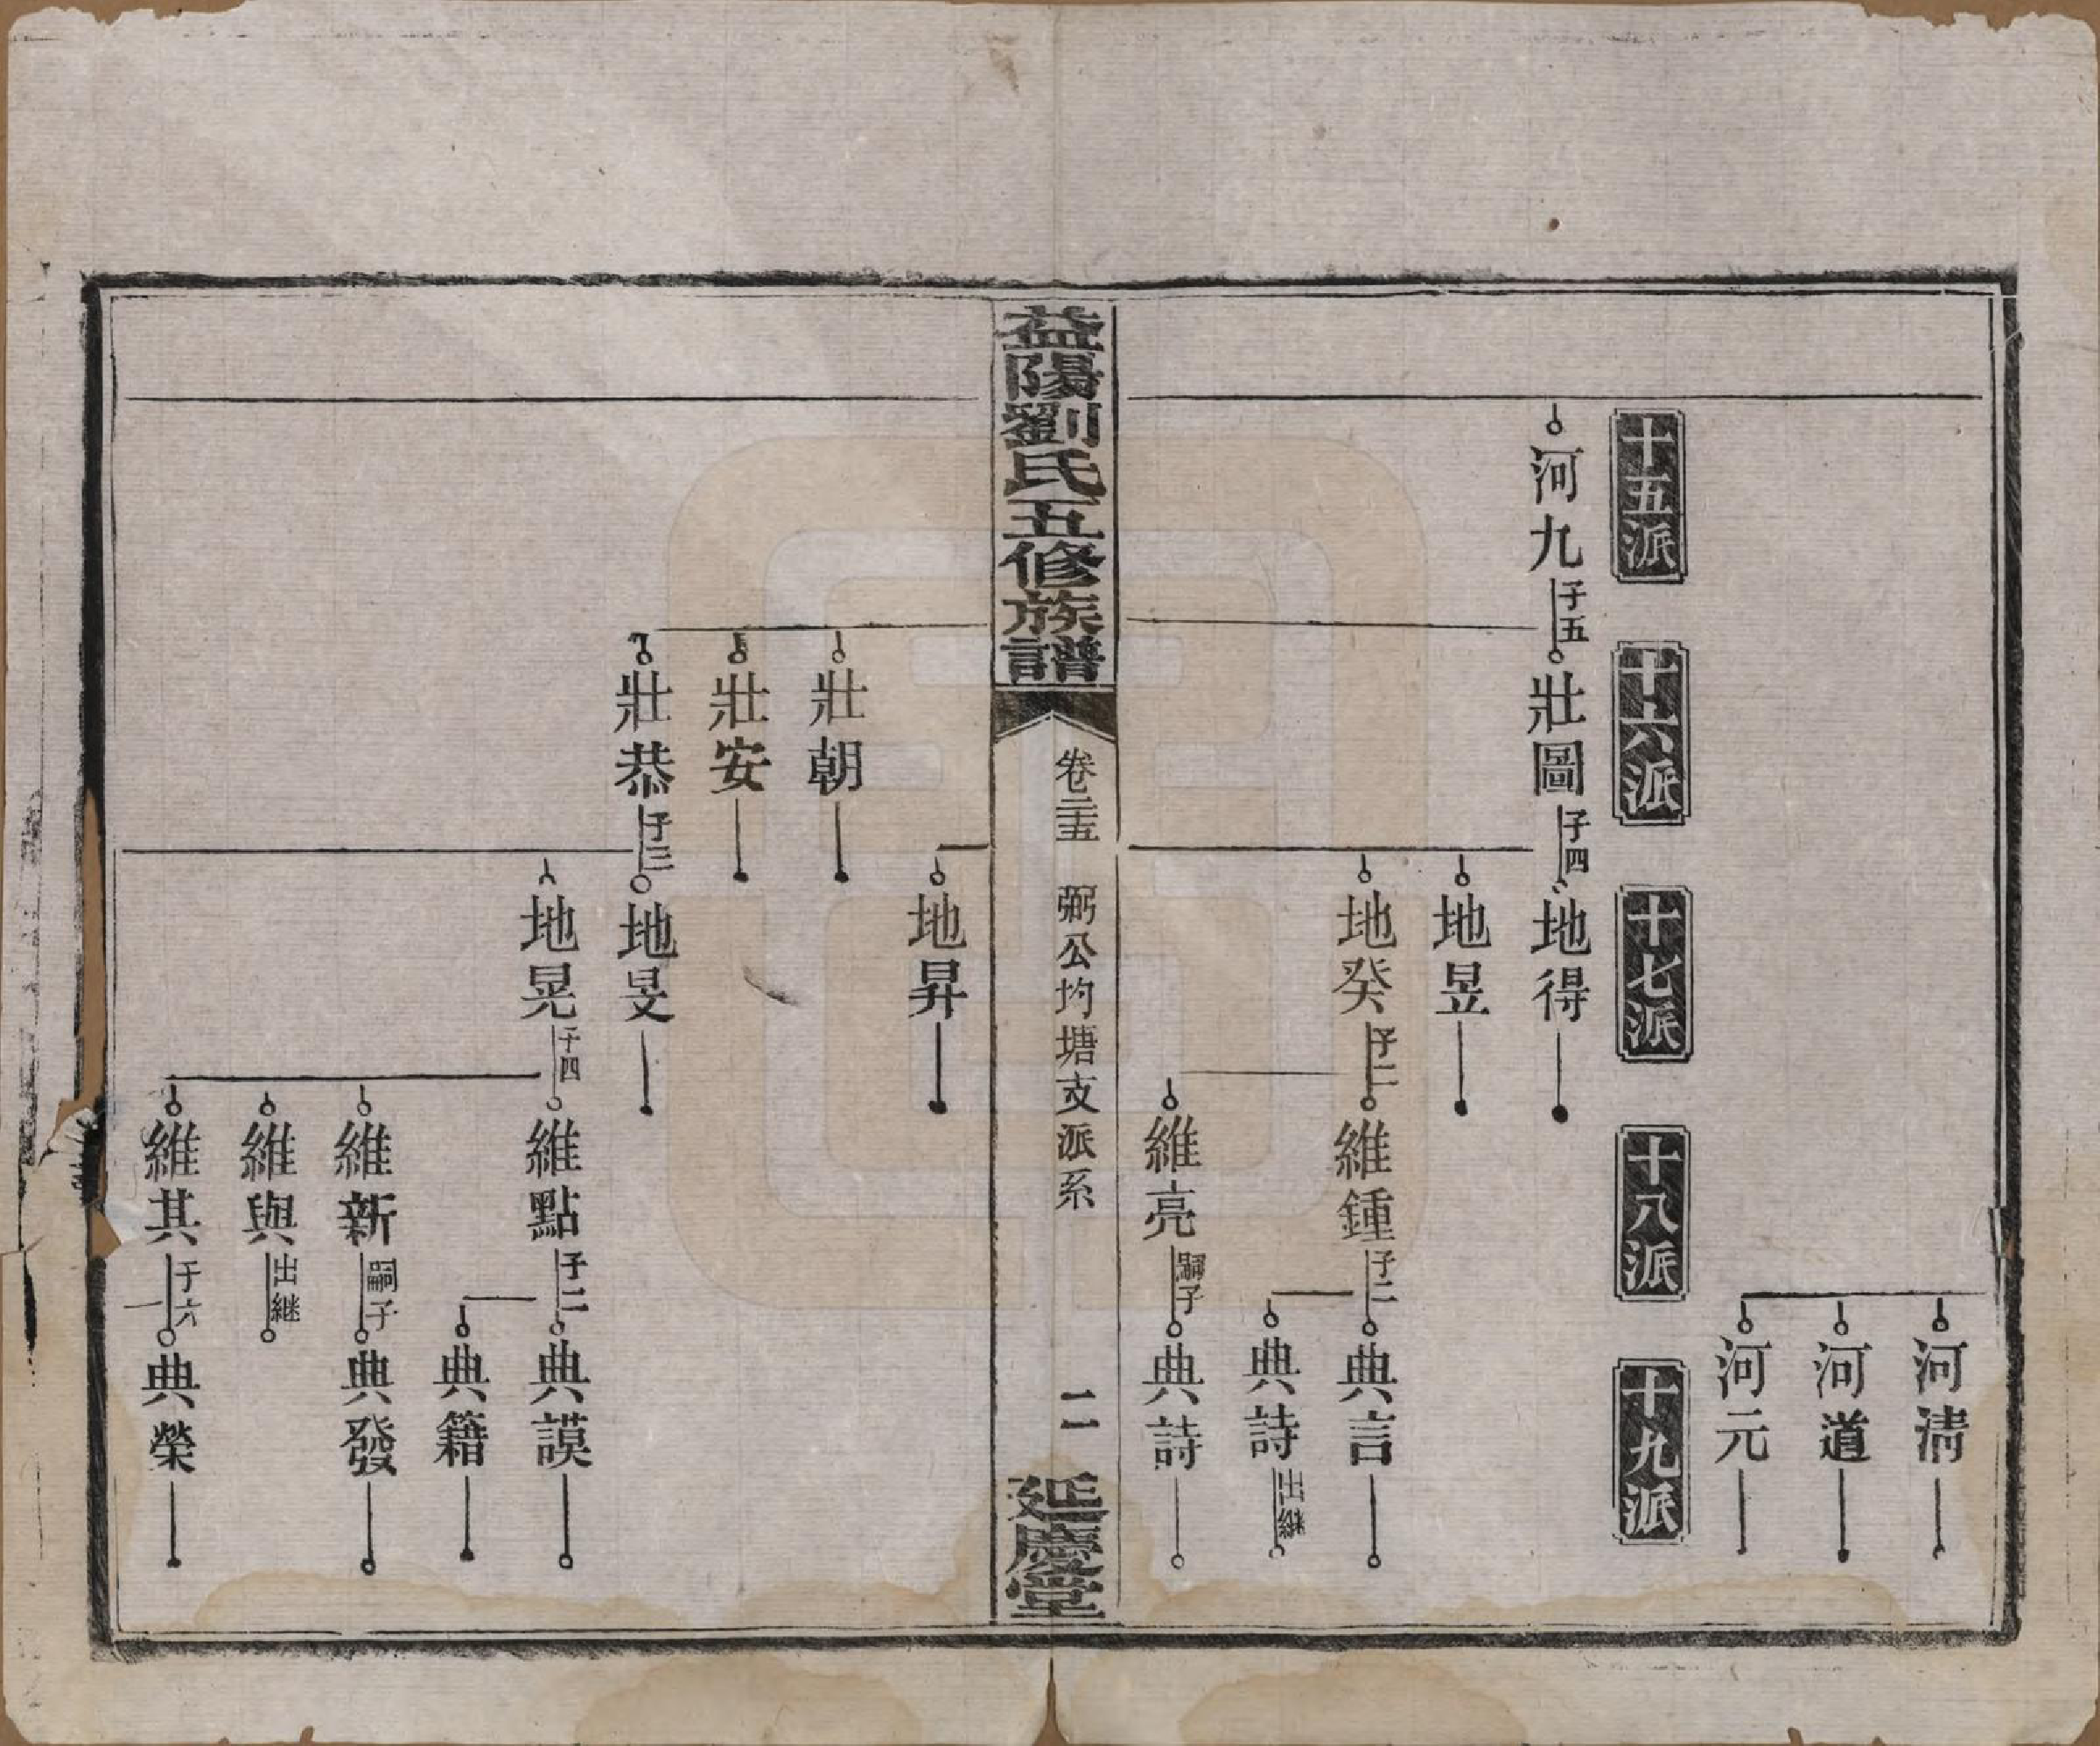 河清
河道
河元
十五派
十六派
十七派
十八派
十九派
河九子五
壯圖子四
地得
地昱
地癸子二
維鍾子二
典言
典詩出繼
維亮嗣子
典詩
益陽劉氏五修族譜
卷二十五
弼公均塘支派系
二
延慶堂
地昇
壯朝
壯安
壯恭子三
地旻
地晃子四
維點子二
典謨
典籍
維新嗣子
典發
維與出継
維其子六
典榮